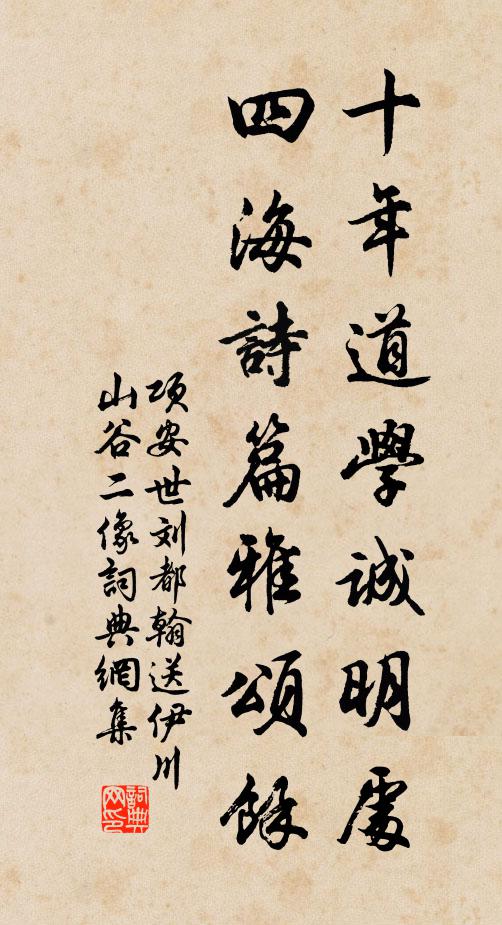 十年道學誠明處
四海詩篇雅頌餘
項安世刘都翰送伊川
山谷二像詞典網集
詞典网印